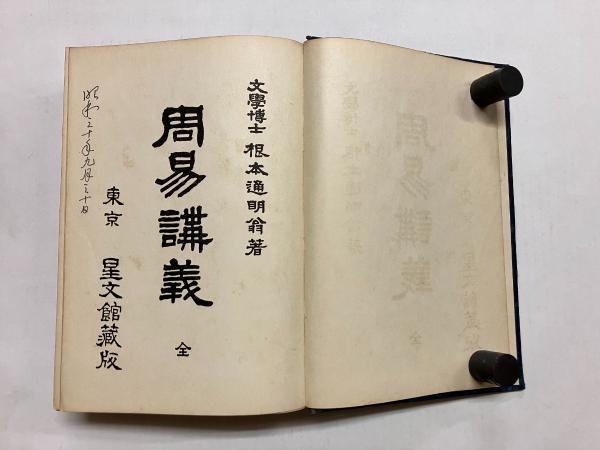 文學博士 根本通明翁著
周易講義 全
東京 星文館藏版
昭和三十年九月三十日